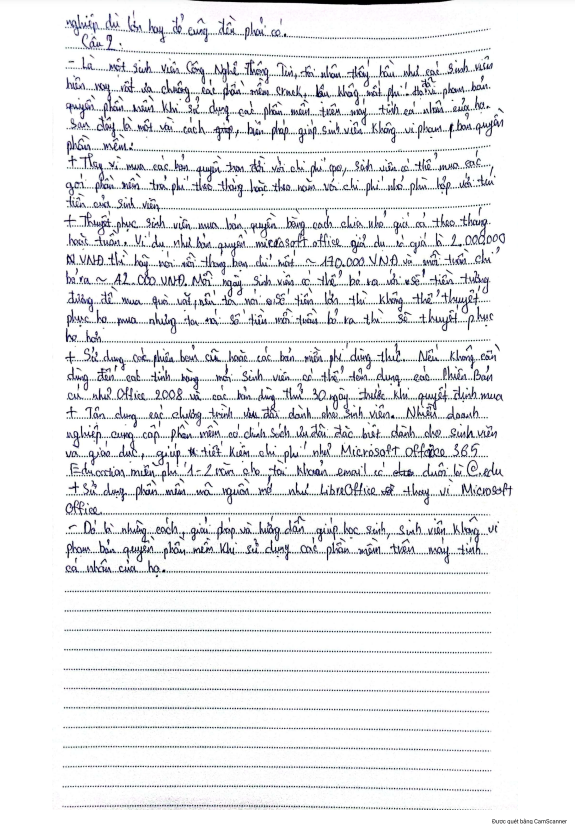 nghiệp dù lớn hay đồ cũng đều phải có.
Câu 2.
- Là một sinh viên Công Nghệ Thông Tin, tôi nhận thấy hầu như các sinh viên
hiện nay rất ưa chuộng các phần mềm crack, bẻ khóa, mất phí để vi phạm bản
quyền phần mềm khi sử dụng các phần mềm trên máy tính cá nhân của họ.
sau đây là một vài cách, biện pháp giúp sinh viên không vi phạm bản quyền
phần mềm:
+ Thay vì mua các bản quyền trọn đời với chi phí cao, sinh viên có thể mua các
gói phần mềm trả phí theo tháng hoặc theo năm với chi phí nhỏ phù hợp với túi
tiền của sinh viên
+ Thuyết phục sinh viên mua bản quyền bằng cách chia nhỏ giá cả theo tháng
hoặc tuần. Ví dụ như bản quyền microsoft office giá dụ có giá là 2.000.000
VNĐ thì hãy nói với tháng bạn chỉ mất ~ 170.000 VNĐ và mỗi tuần chỉ
bỏ ra ~ 42.000 VNĐ. Mỗi ngày sinh viên có thể bỏ ra với số tiền tương
đương để mua quà vặt, nếu ta nói số tiền lớn thì không thể thuyết
phục họ mua nhưng ta nói số tiền mỗi tuần bỏ ra thì sẽ thuyết phục
họ hơn
+ Sử dụng các phiên bản cũ hoặc các bản miễn phí dùng thử. Nếu không cần
dùng đến các tính năng mới sinh viên có thể tận dụng các Phiên Bản
cũ như Office 2008 và các bản dùng thử 30 ngày trước khi quyết định mua
+ Tận dụng các chương trình ưu đãi dành cho sinh viên. Nhiều doanh
nghiệp cung cấp phần mềm có chính sách ưu đãi đặc biệt dành cho sinh viên
và giáo dục, giúp tiết kiệm chi phí như Microsoft Office 365
Education miễn phí 1-2 năm cho tài khoản email có đuôi là @.edu
+ Sử dụng phần mềm mã nguồn mở như LibreOffice thay vì Microsoft
Office
- Đó là những cách, giải pháp và hướng dẫn giúp học sinh, sinh viên không vi
phạm bản quyền phần mềm khi sử dụng các phần mềm trên máy tính
cá nhân của họ.
Được quét bằng CamScanner